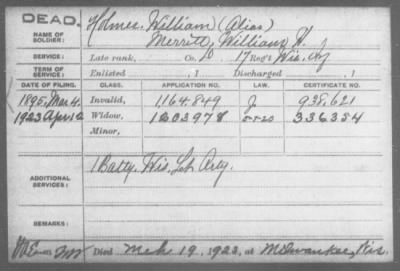 DEAD.
NAME OF SOLDIER:
Holmes William (Alias)
Merritt, William H.
SERVICE:
Late rank, Co. D 17 Reg't Wis. Inf
TERM OF SERVICE:
Enlisted , 1 Discharged , 1
DATE OF FILING. CLASS. APPLICATION NO. LAW. CERTIFICATE NO.
1895, Mar 4. Invalid, 1164.849 J. 938,621
1923 April 2 Widow, 1203978 336354
Minor,
ADDITIONAL SERVICES:
1 Batty. Wis. Lt. Arty.
REMARKS:
Died Mch 19, 1923, at Milwaukee, Wis.